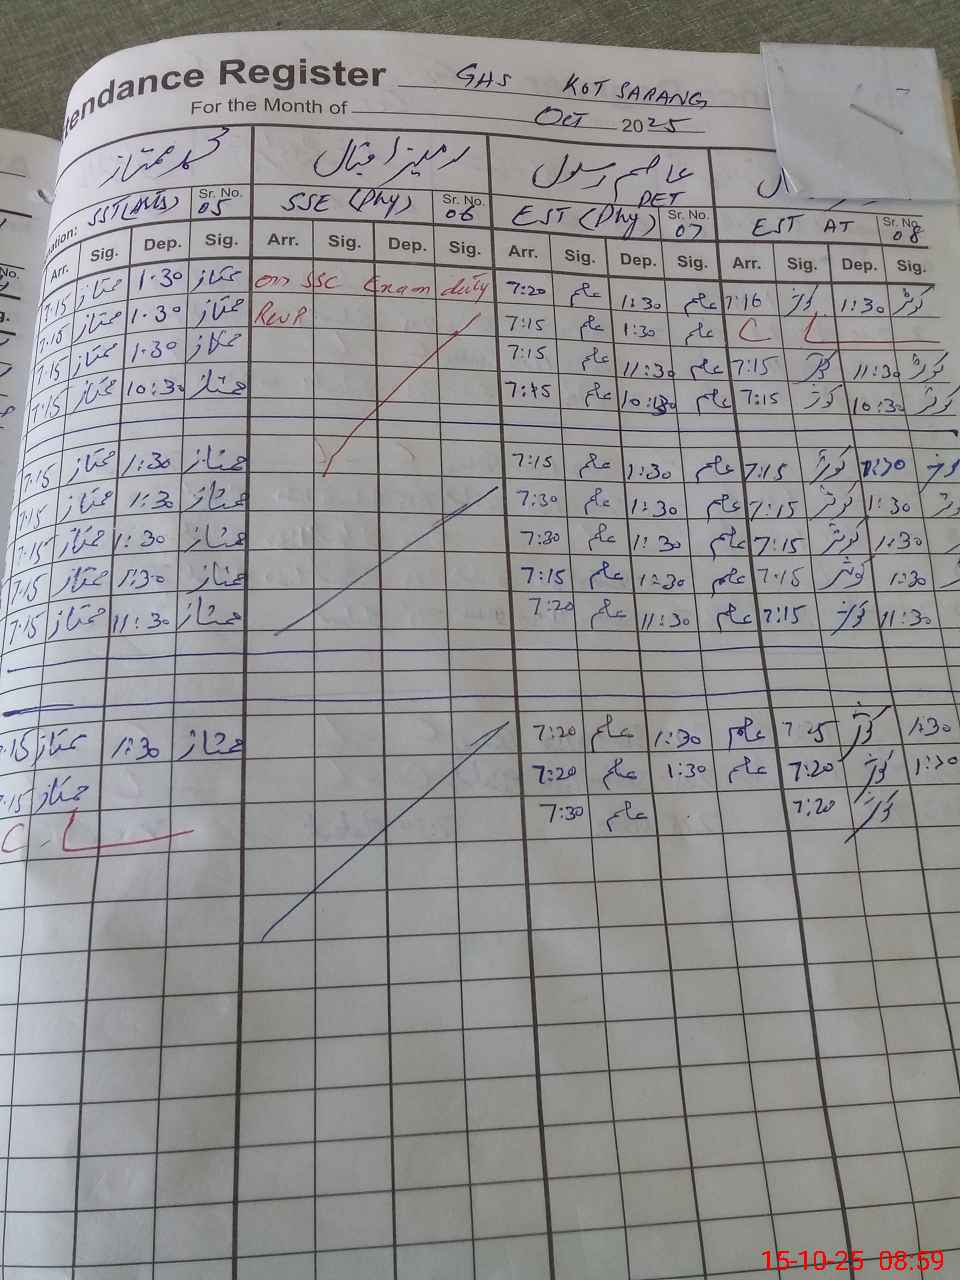 Attendance Register GHS KOT SARANG
For the Month of Oct 2025
محمد ممتاز رمیز اقبال عاصم رسول
SST (Arts) Sr. No. 05 SSE (Phy) Sr. No. 06 EST (Phy) PET Sr. No. 07 EST AT Sr. No. 08
Arr. Sig. Dep. Sig. Arr. Sig. Dep. Sig. Arr. Sig. Dep. Sig. Arr. Sig. Dep. Sig.
7:15 ممتاز 1:30 ممتاز on SSC Exam duty 7:20 عاصم 1:30 عاصم 7:16 کوثر 1:30 کوثر
7:15 ممتاز 1:30 ممتاز RWP 7:15 عاصم 1:30 عاصم C L
7:15 ممتاز 1:30 ممتاز 7:15 عاصم 11:30 عاصم 7:15 کوثر 11:30 کوثر
7:15 ممتاز 10:30 ممتاز 7:15 عاصم 10:30 عاصم 7:15 کوثر 10:30 کوثر
7:15 ممتاز 1:30 ممتاز 7:15 عاصم 1:30 عاصم 7:15 کوثر 1:30 کوثر
7:15 ممتاز 1:30 ممتاز 7:30 عاصم 1:30 عاصم 7:15 کوثر 1:30
7:15 ممتاز 1:30 ممتاز 7:30 عاصم 1:30 عاصم 7:15 کوثر 1:30
7:15 ممتاز 1:30 ممتاز 7:15 عاصم 1:30 عاصم 7:15 کوثر 1:30
7:15 ممتاز 11:30 ممتاز 7:20 عاصم 11:30 عاصم 7:15 کوثر 11:30
7:15 ممتاز 1:30 ممتاز 7:20 عاصم 1:30 عاصم 7:25 کوثر 1:30
7:15 ممتاز 7:20 عاصم 1:30 عاصم 7:20 کوثر 1:30
C L 7:30 عاصم 7:20 کوثر
15-10-25 08:59